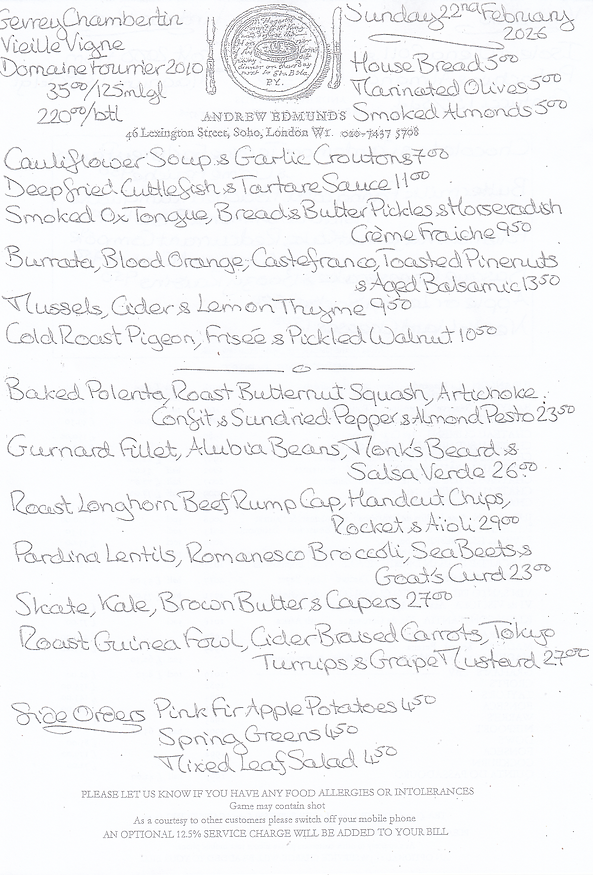 Gevrey Chambertin
Vieille Vigne
Domaine Fourrier 2010
35⁰⁰/125mlgl
220⁰⁰/btl
Sunday 22ⁿᵈ February
2026
House Bread 5⁰⁰
Marinated Olives 5⁰⁰
Smoked Almonds 5⁰⁰
ANDREW EDMUNDS
46 Lexington Street, Soho, London W1. 020-7437 5708
Cauliflower Soup & Garlic Croutons 7⁰⁰
Deep Fried Cuttlefish & Tartare Sauce 11⁰⁰
Smoked Ox Tongue, Bread & Butter Pickles & Horseradish
Crème Fraiche 9⁵⁰
Burrata, Blood Orange, Castefranco, Toasted Pinenuts
& Aged Balsamic 13⁵⁰
Mussels, Cider & Lemon Thyme 9⁵⁰
Cold Roast Pigeon, Frisée & Pickled Walnut 10⁵⁰
Baked Polenta, Roast Butternut Squash, Artichoke
Confit & Sundried Pepper & Almond Pesto 23⁵⁰
Gurnard Fillet, Alubia Beans, Monk's Beard &
Salsa Verde 26⁰⁰
Roast Longhorn Beef Rump Cap, Handcut Chips,
Rocket & Aioli 29⁰⁰
Pardina Lentils, Romanesco Broccoli, Sea Beets &
Goat's Curd 23⁰⁰
Skate, Kale, Brown Butter & Capers 27⁰⁰
Roast Guinea Fowl, Cider Braised Carrots, Tokyo
Turnips & Grape Mustard 27⁰⁰
Side Orders Pink Fir Apple Potatoes 4⁵⁰
Spring Greens 4⁵⁰
Mixed Leaf Salad 4⁵⁰
PLEASE LET US KNOW IF YOU HAVE ANY FOOD ALLERGIES OR INTOLERANCES
Game may contain shot
As a courtesy to other customers please switch off your mobile phone
AN OPTIONAL 12.5% SERVICE CHARGE WILL BE ADDED TO YOUR BILL